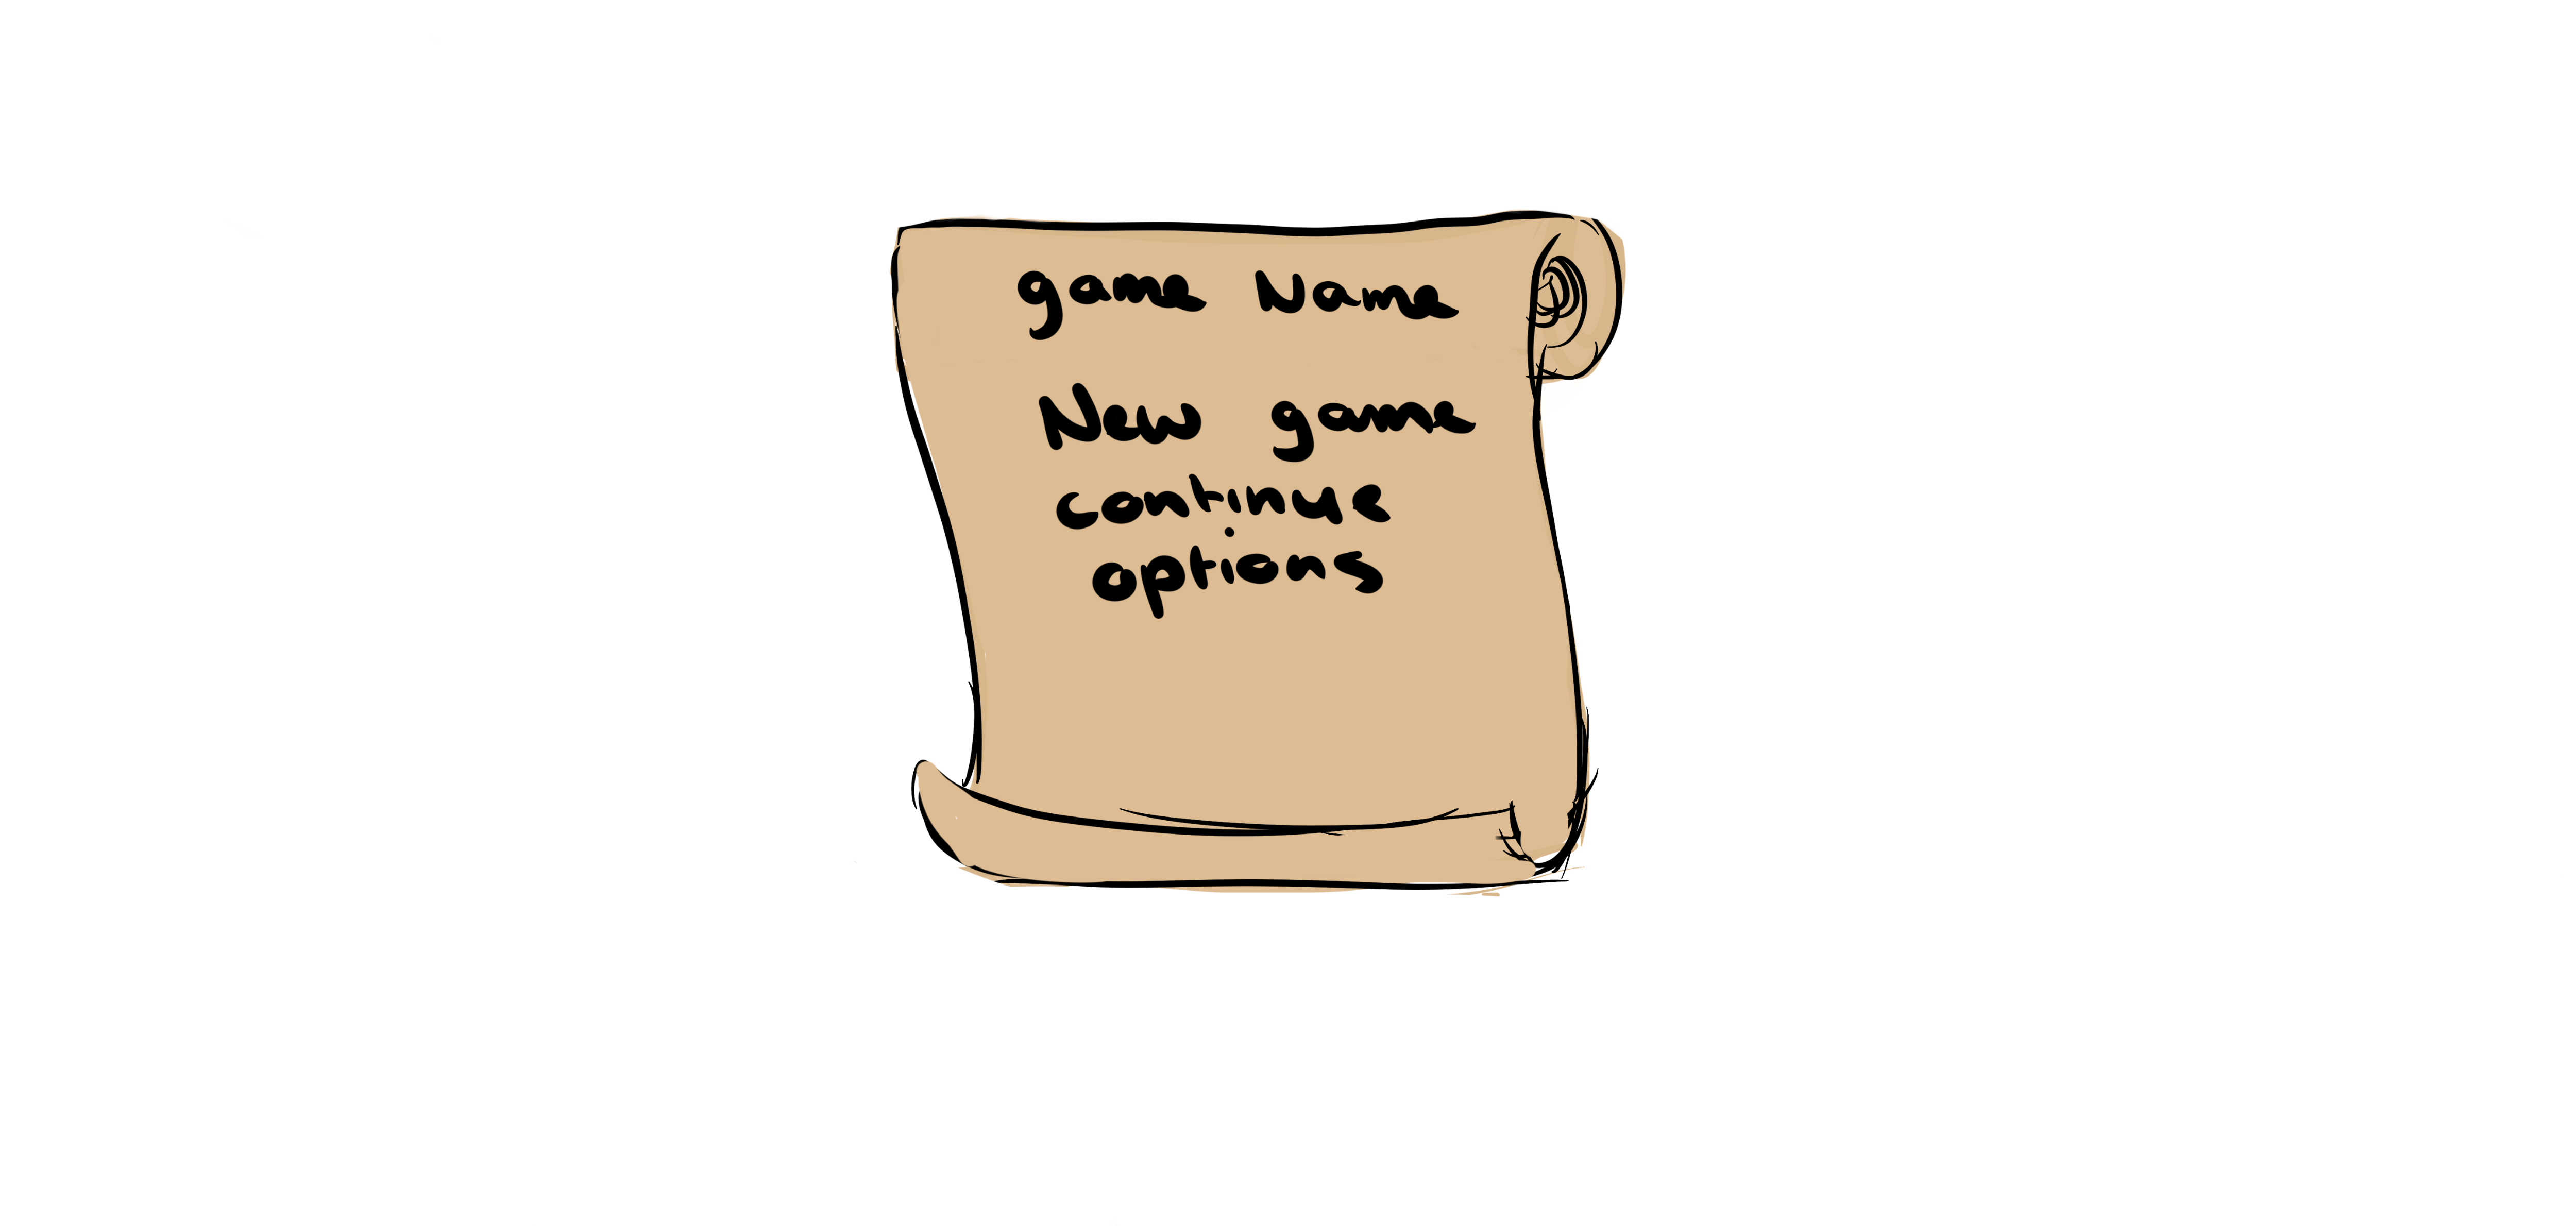 game Name
New game
continue
options